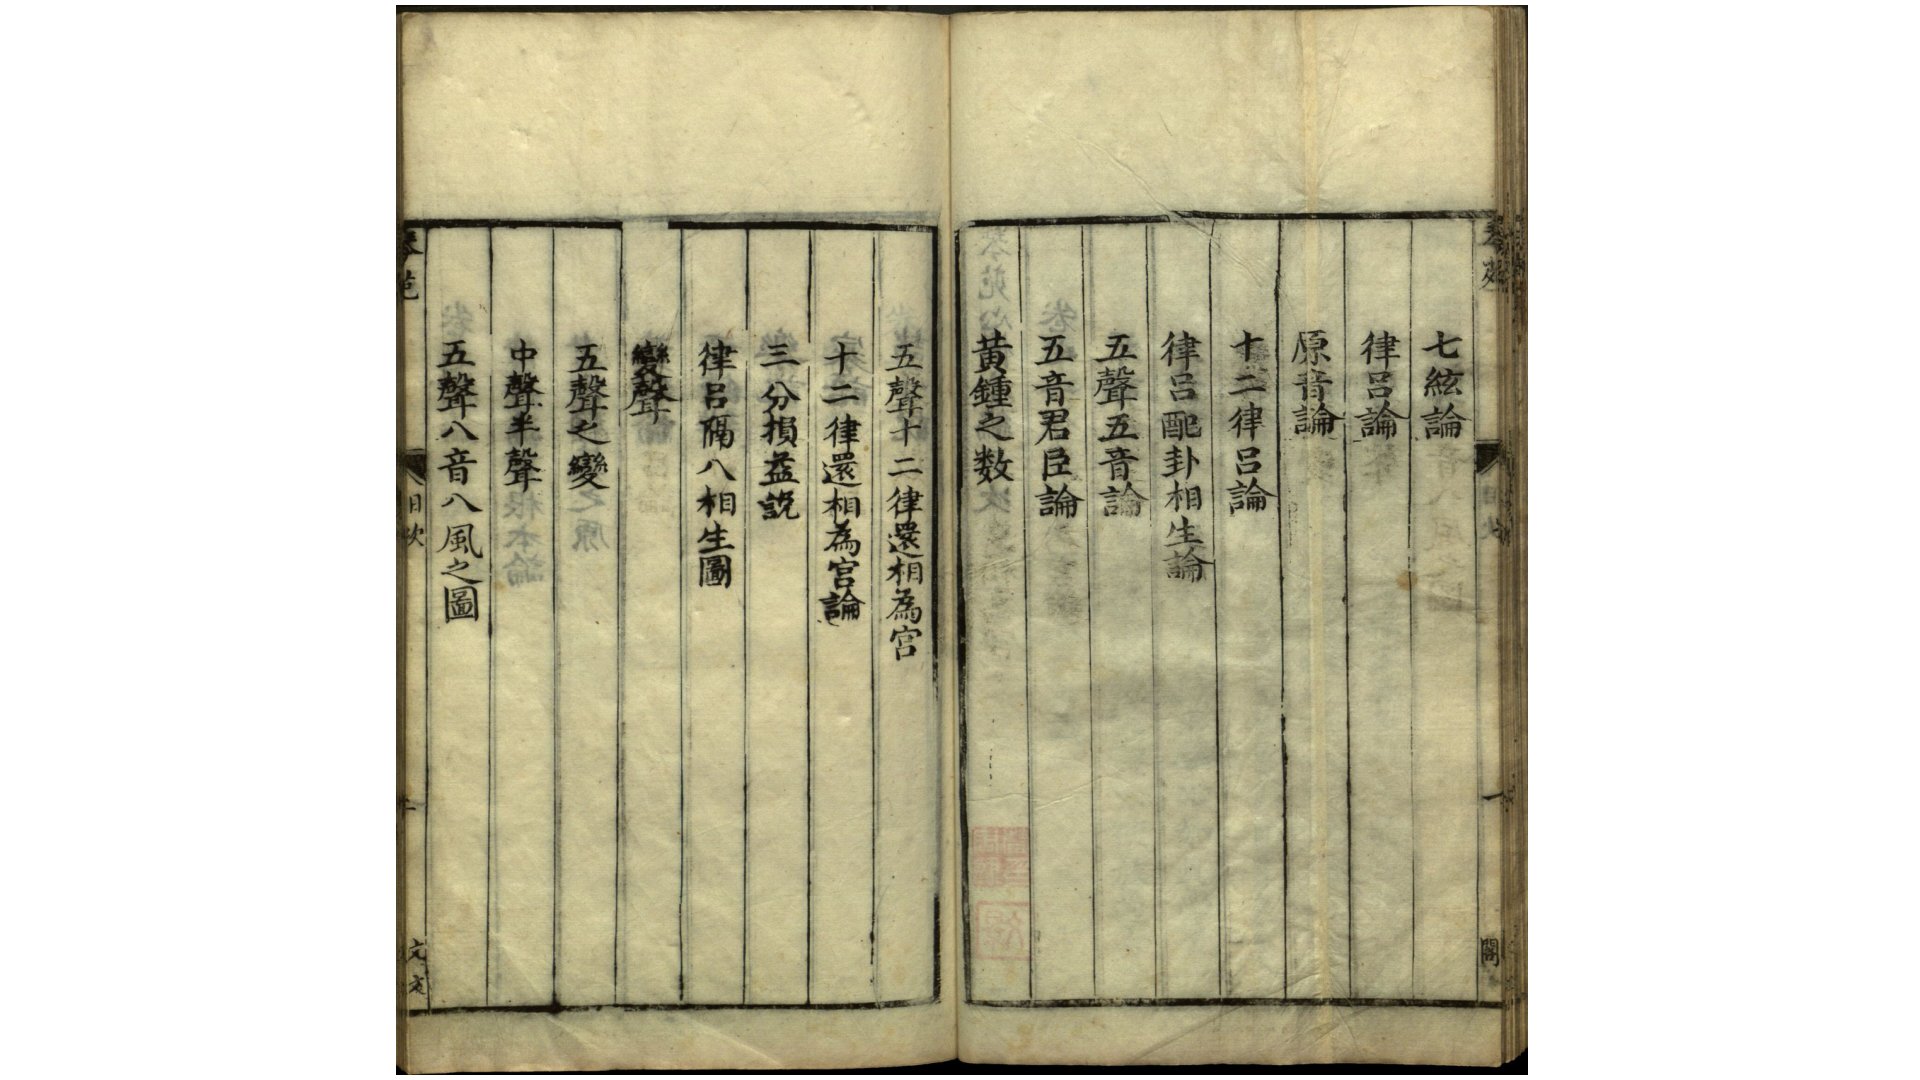 七絃論
律呂論
原音論
十二律呂論
律呂配卦相生論
五聲五音論
五音君臣論
黃鍾之数
五聲十二律還相為宮
十二律還相為宮論
三分損益說
律呂隔八相生圖
變聲
五聲之變
中聲半聲
五聲八音八風之圖
目次